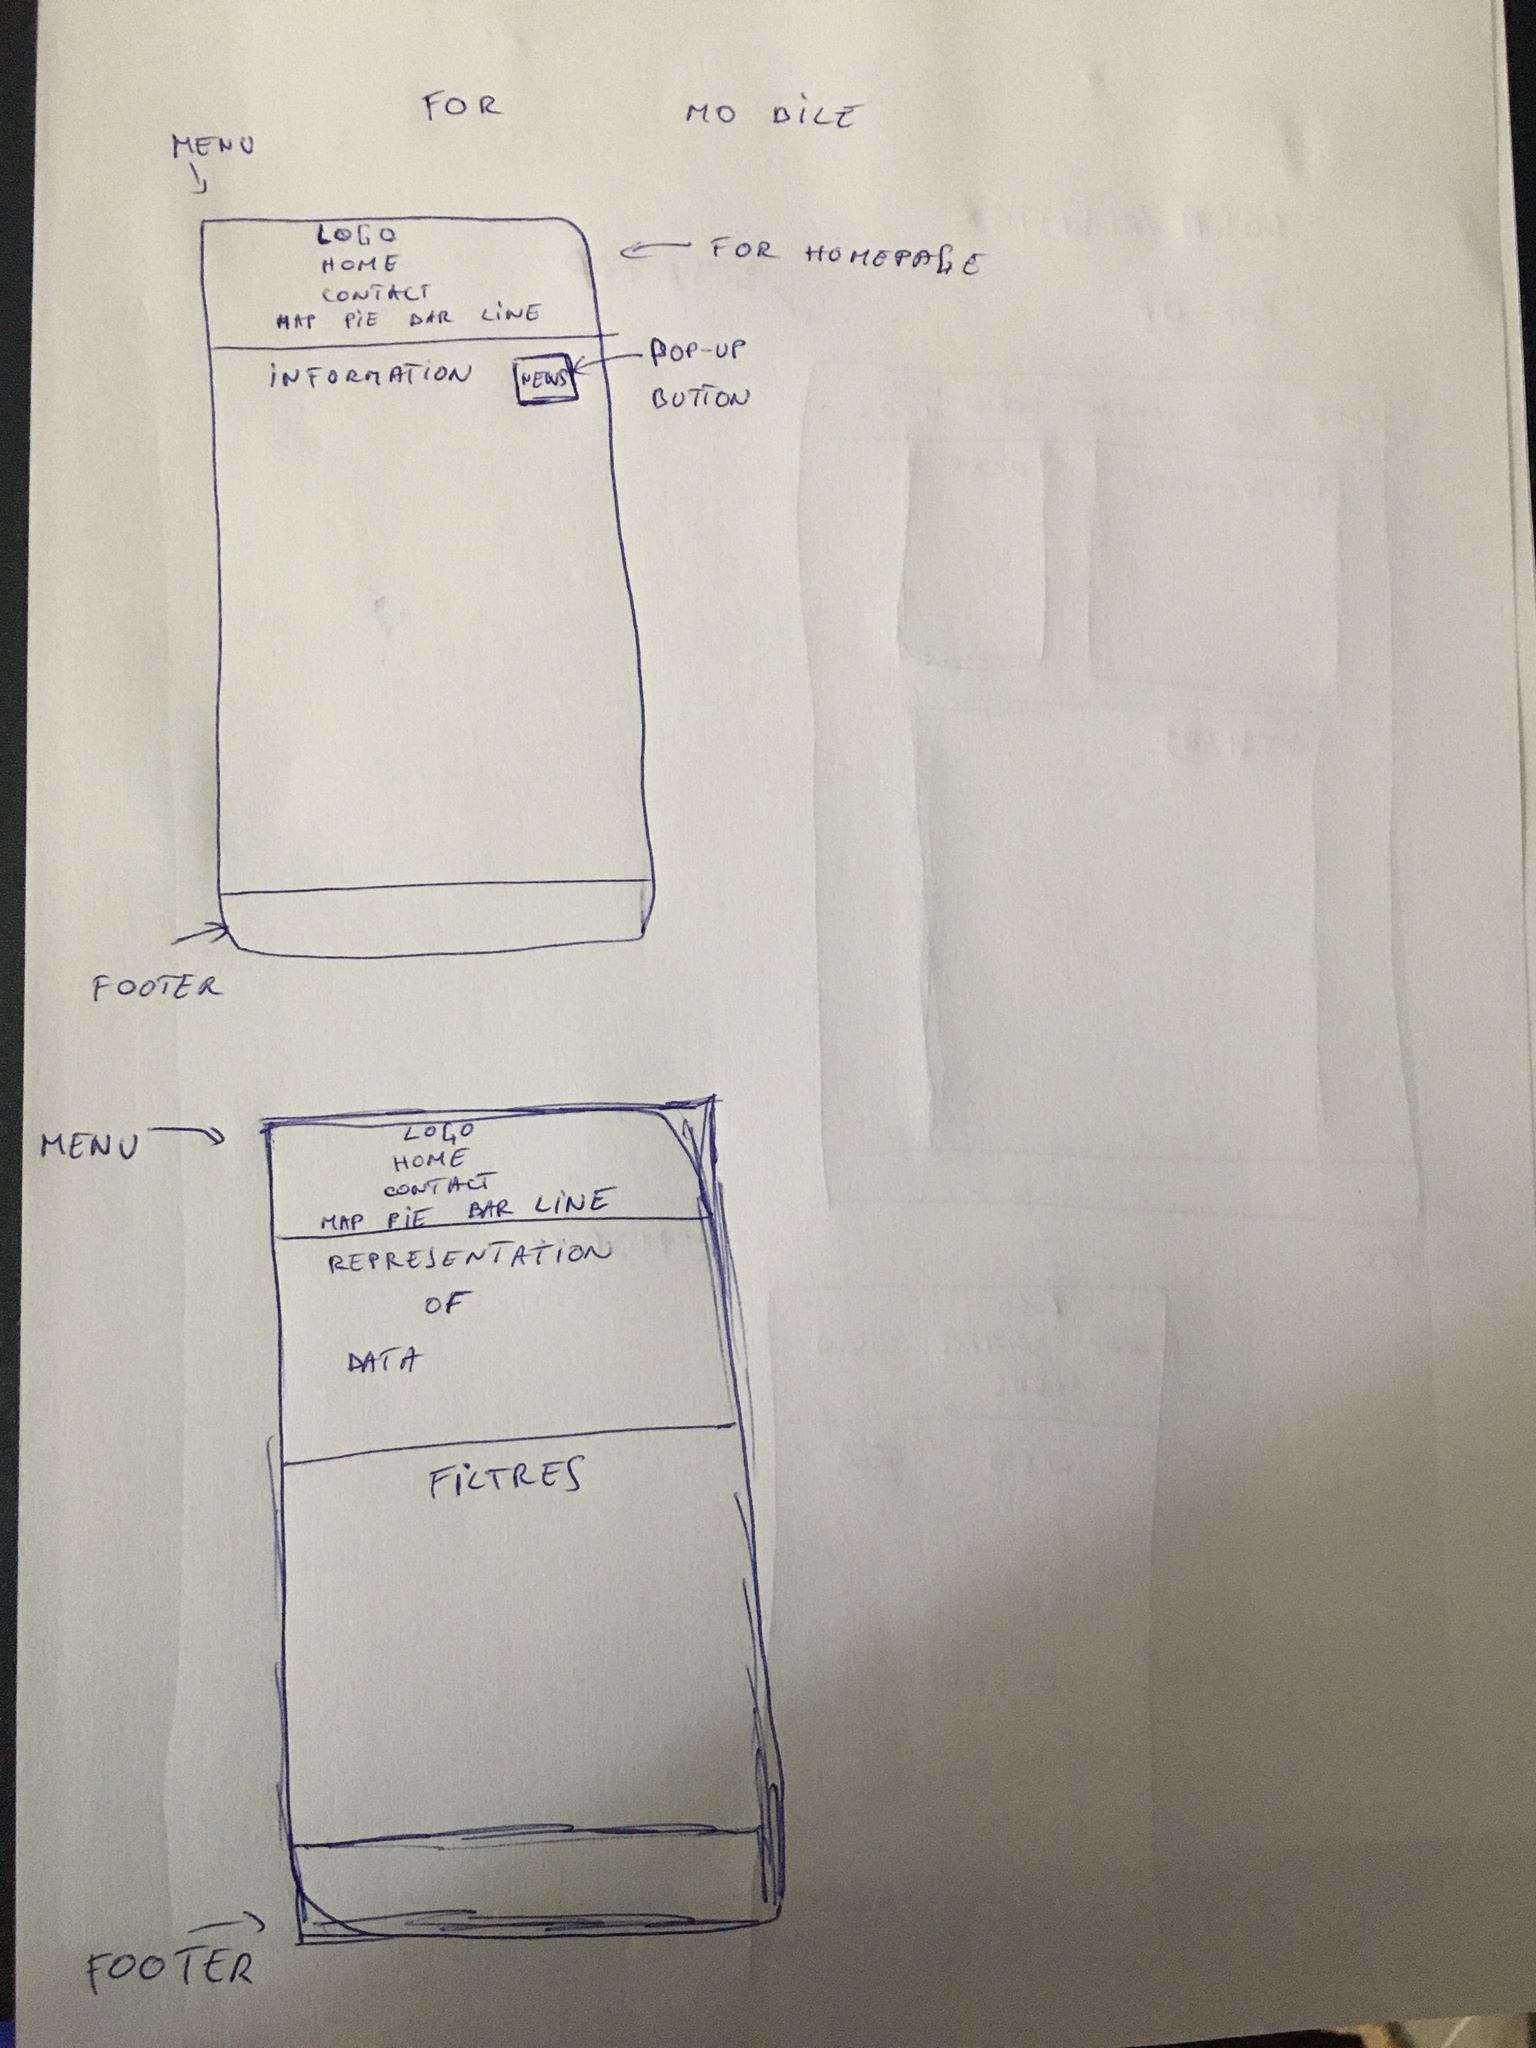 FOR MOBILE
MENU
LOGO
HOME
CONTACT
MAP PIE BAR LINE
FOR HOMEPAGE
INFORMATION
NEWS
POP-UP
BUTTON
FOOTER
MENU
LOGO
HOME
CONTACT
MAP PIE BAR LINE
REPRESENTATION
OF
DATA
FILTRES
FOOTER